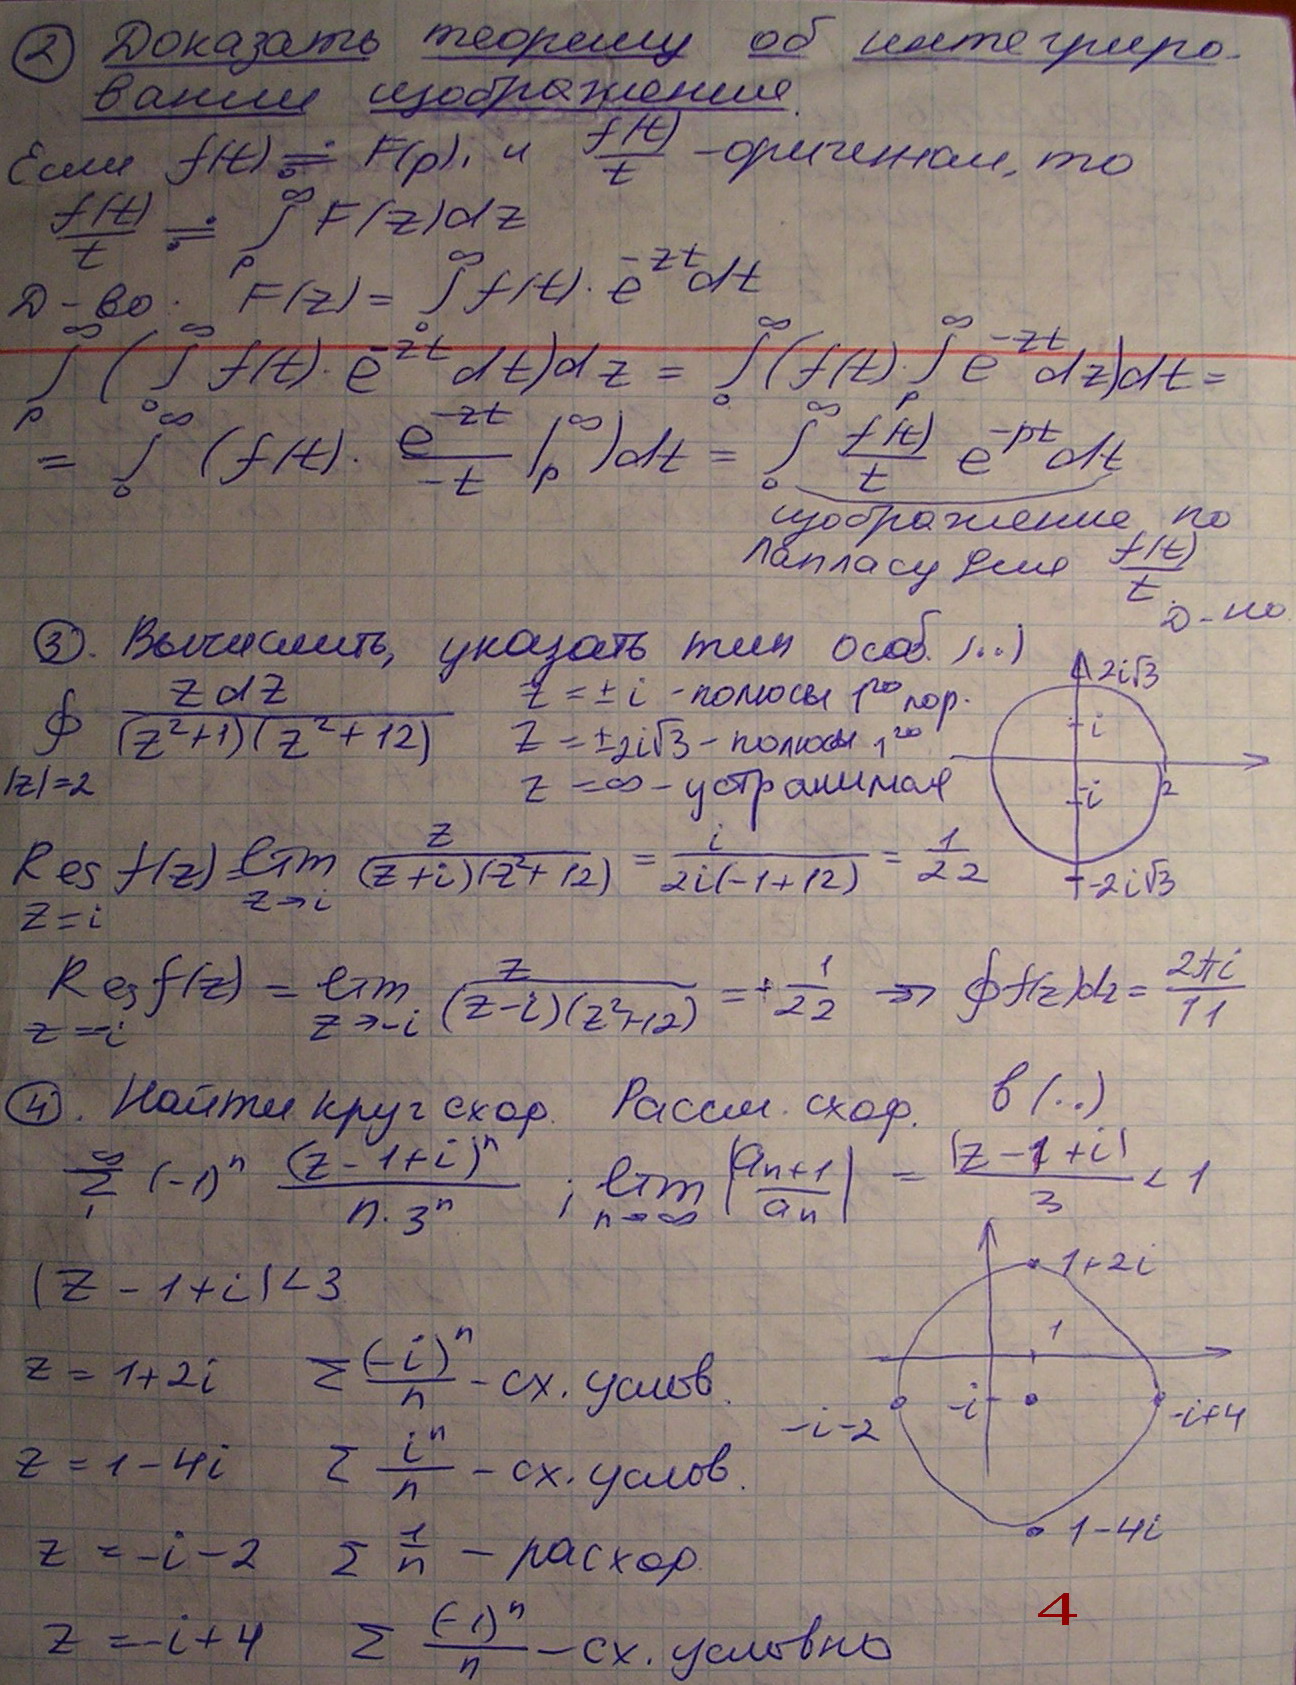 ② Доказать теорему об интегриро-
вании изображения.
Если f(t) ≓ F(p), и f(t)/t - оригинал, то
f(t)/t ≓ ∫_p^∞ F(z)dz
Д-во. F(z) = ∫_0^∞ f(t)·e^{-zt}dt
∫_p^∞ (∫_0^∞ f(t)·e^{-zt}dt)dz = ∫_0^∞ (f(t)·∫_p^∞ e^{-zt}dz)dt =
= ∫_0^∞ (f(t)· e^{-zt}/-t |_p^∞)dt = ∫_0^∞ f(t)/t e^{-pt}dt
изображение по
Лапласу для f(t)/t.
Д-но
③. Вычислить, указать тип особ. (..)
∮_{|z|=2} zdz/(z²+1)(z²+12)
z = ±i - полюсы 1го пор.
z = ±2i√3 - полюсы 1го
z = ∞ - устранимая
2i√3
i
-i
2
-2i√3
Res_{z=i} f(z) = lim_{z→i} z/(z+i)(z²+12) = i/2i(-1+12) = 1/22
Res_{z=-i} f(z) = lim_{z→-i} z/(z-i)(z²+12) = + 1/22 ⇒ ∮f(z)dz = 2πi/11
④. Найти круг сход. Рассм. сход. в (..)
∑_1^∞ (-1)^n (z-1+i)^n/n·3^n ; lim_{n→∞} |a_{n+1}/a_n| = |z-1+i|/3 < 1
|z-1+i|<3
z = 1+2i ∑ (-i)^n/n - сх. услов.
z = 1-4i ∑ i^n/n - сх. услов.
z = -i-2 ∑ 1/n - расход.
z = -i+4 ∑ (-1)^n/n - сх. условно
1+2i
1
-i-2
-i
-i+4
1-4i
4